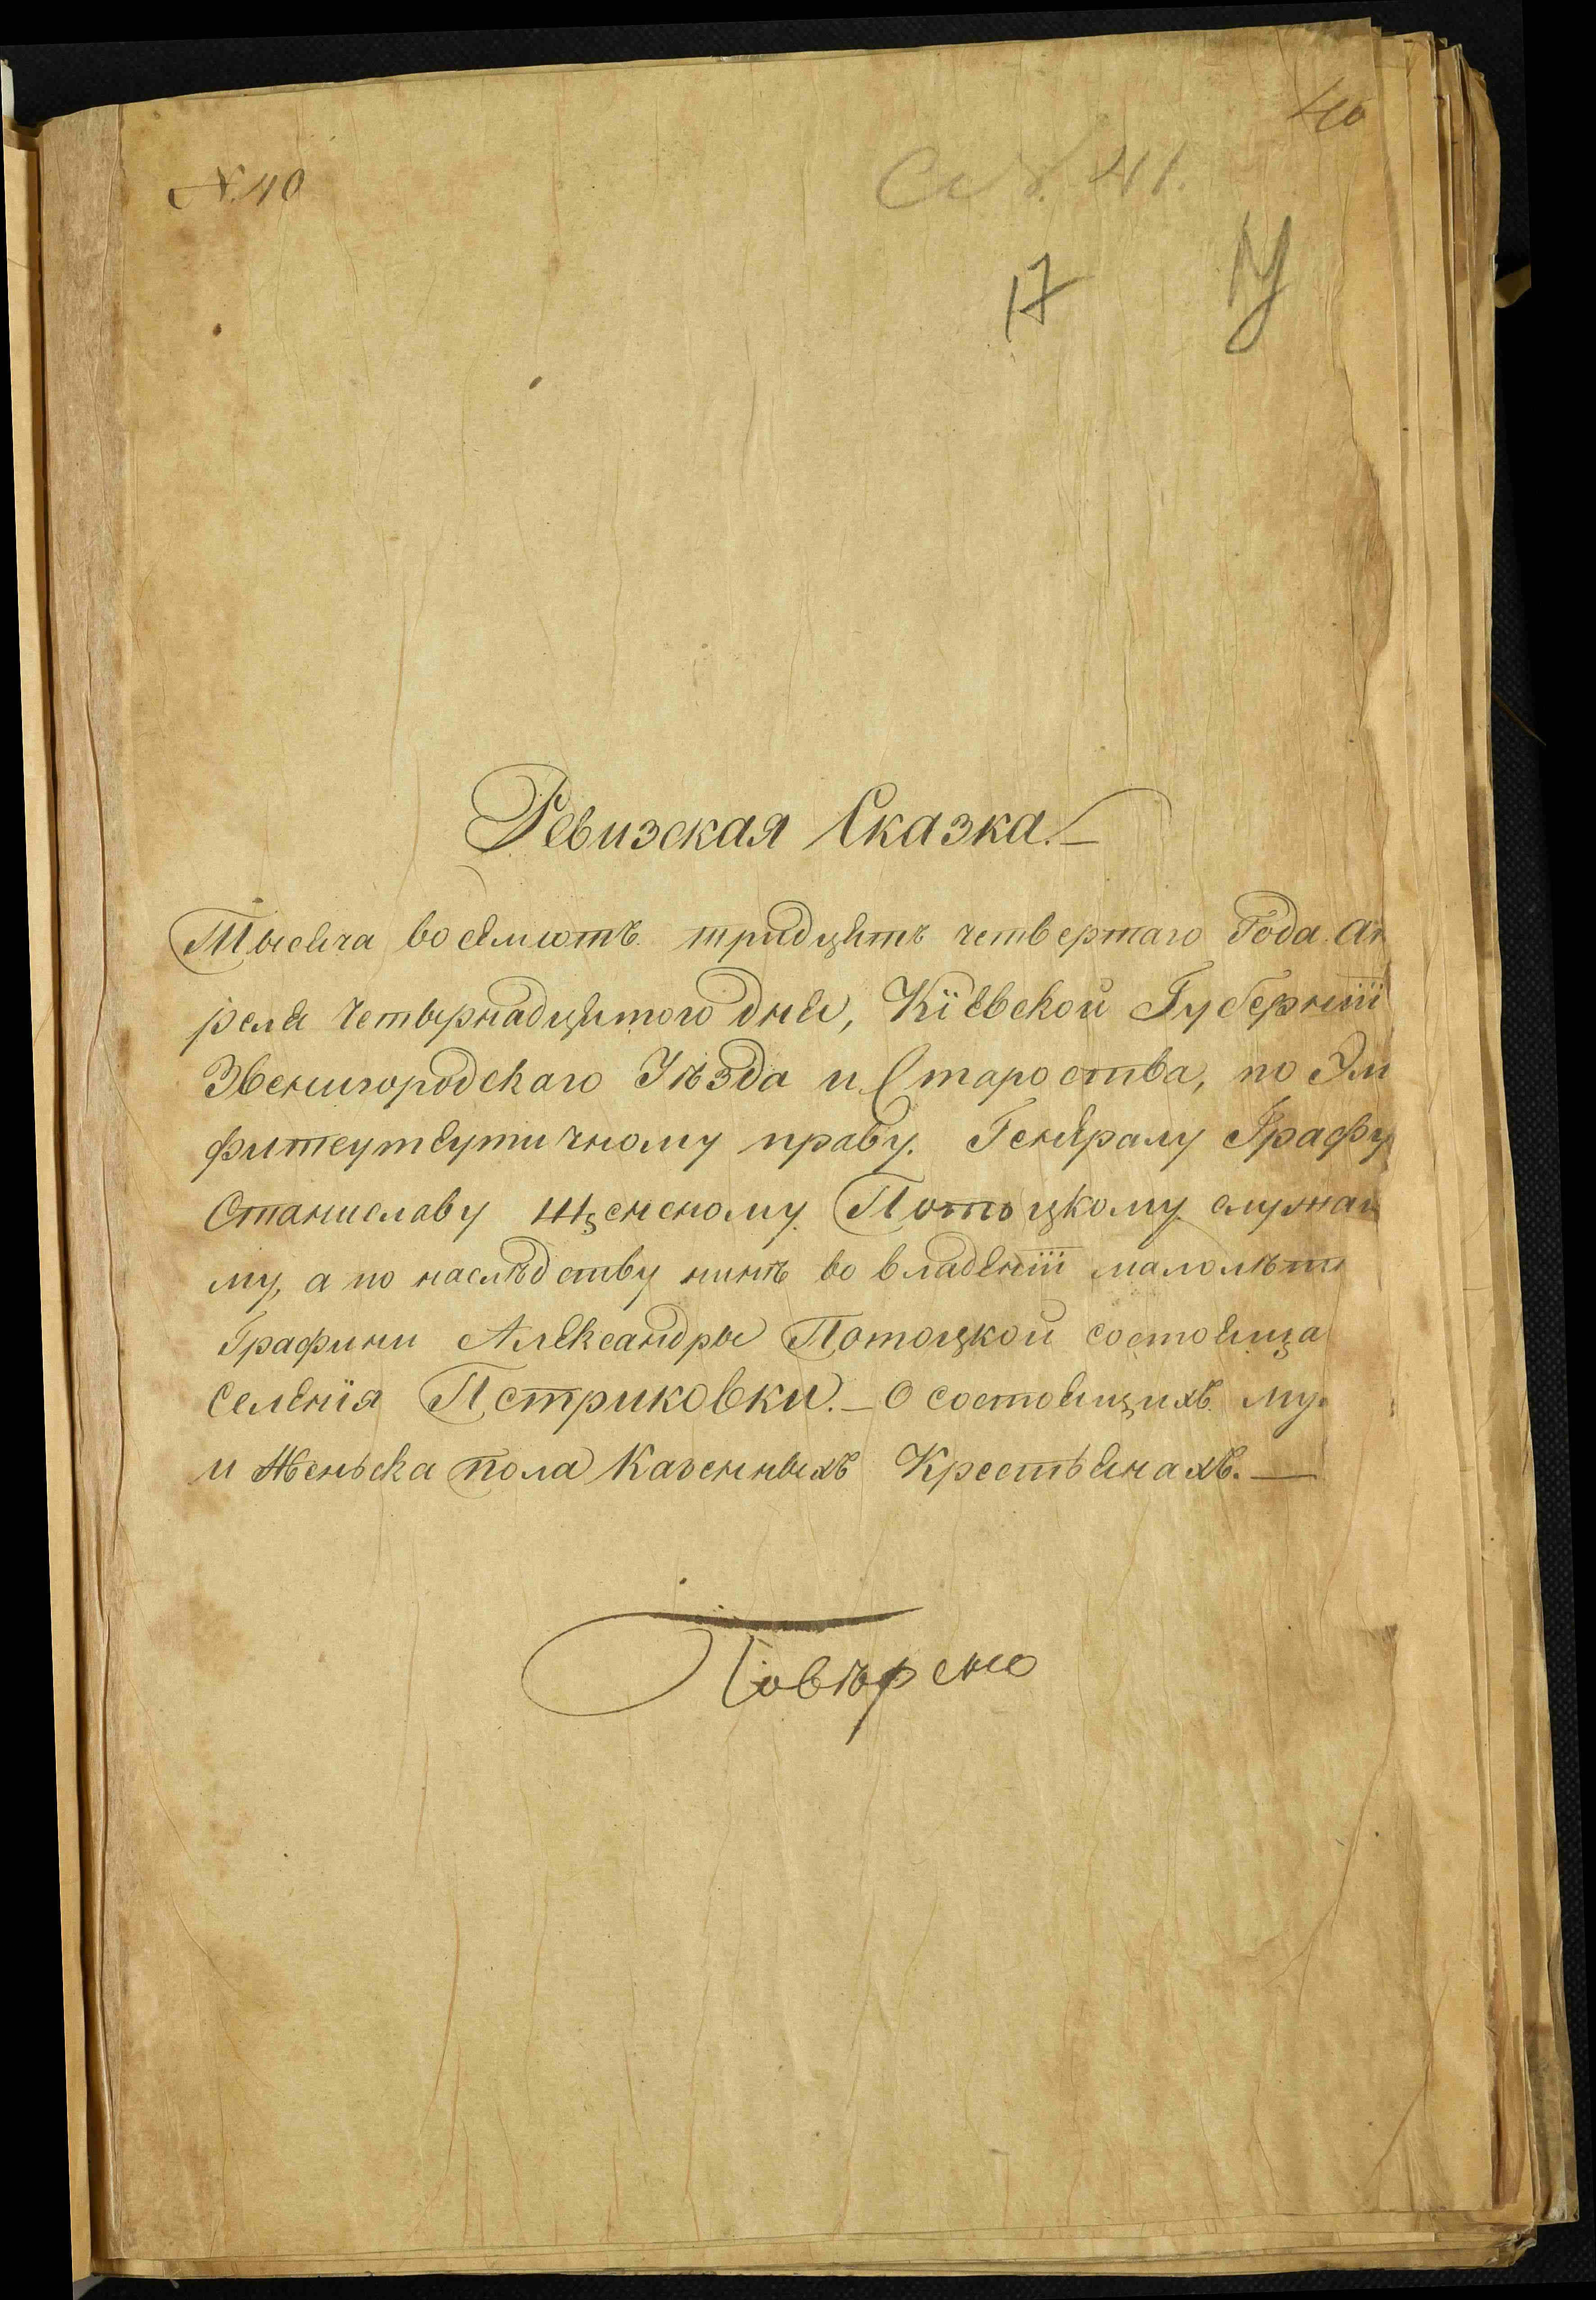 40
N. 40
N. 41.
17
У
Ревизская Сказка.—
Тысяча восемьсотъ тридцять четвертаго Года Ап
реля четвернадцятого дня, Кіевской Губерніи
Звенигородскаго Уѣзда и Староства, по Эм
фитеутеутичному праву. Генералу Графу
Станиславу Щенсному Потоцкому служащ
му, а по наслѣдству нинѣ во владеніи малолѣтн
Графини Александры Потоцкой состояща
Селенія Пстриковки.— О состоящихъ му.
и Женьска пола Казенныхъ Крестьянахъ.—
Повѣрено